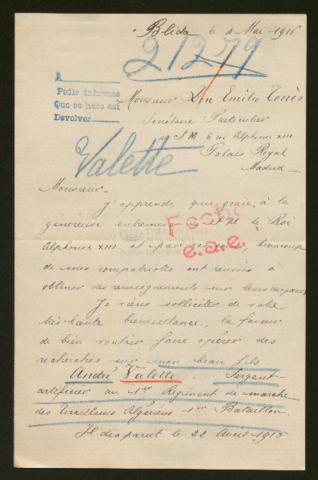 Blida le 4 Mai 1915
21279
A
Pedir informes
Que se hace así
Devolver
Monsieur Don Emilio Torrès
Secrétaire Particulier
S.M. le roi Alphonse XIII
Palais Royal
Madrid
Valette
Monsieur
J'apprends que grâce, à la
généreuse entremise S.M. le Roi
Alphonse XIII et beaucoup
de mes compatriotes ont réussi à
obtenir des renseignements sur leurs disparus
Fecho
e.a.e.
Je viens solliciter de votre
très haute bienveillance, la faveur
de bien vouloir faire opérer des
recherches sur mon beau fils
André Valette Sergent
artificier au 1er Régiment de marche
des Tirailleurs Algériens 1er Bataillon.
Il disparut le 22 Avril 1915